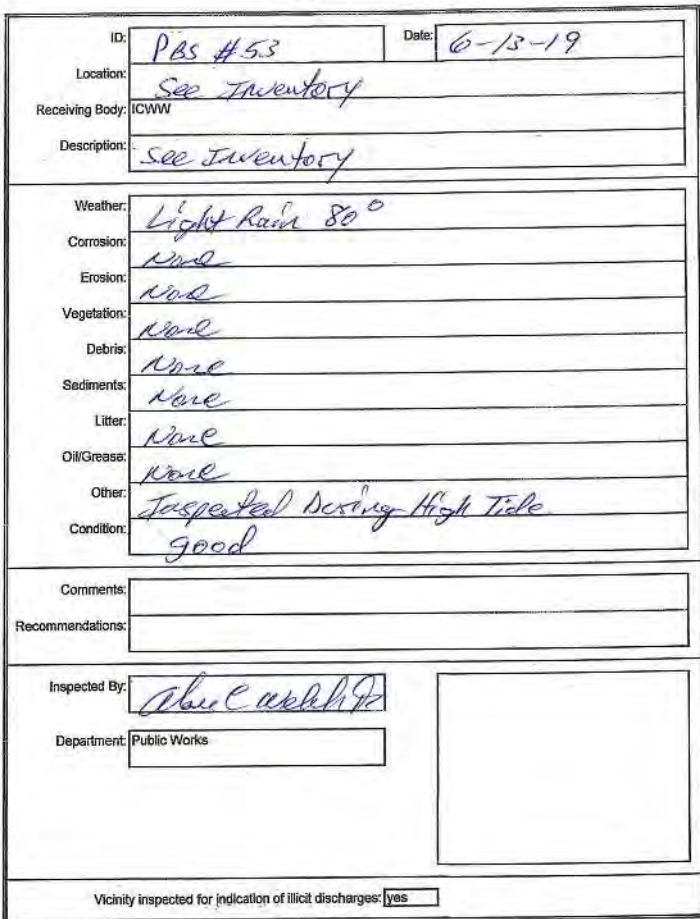 ID: PBS #53 Date: 6-13-19
Location: See Inventory
Receiving Body: ICWW
Description: See Inventory
Weather: Light Rain 80°
Corrosion: None
Erosion: None
Vegetation: None
Debris: None
Sediments: None
Litter: None
Oil/Grease: None
Other: Inspected During High Tide
Condition: good
Comments:
Recommendations:
Inspected By:
Department: Public Works
Vicinity inspected for indication of illicit discharges: yes